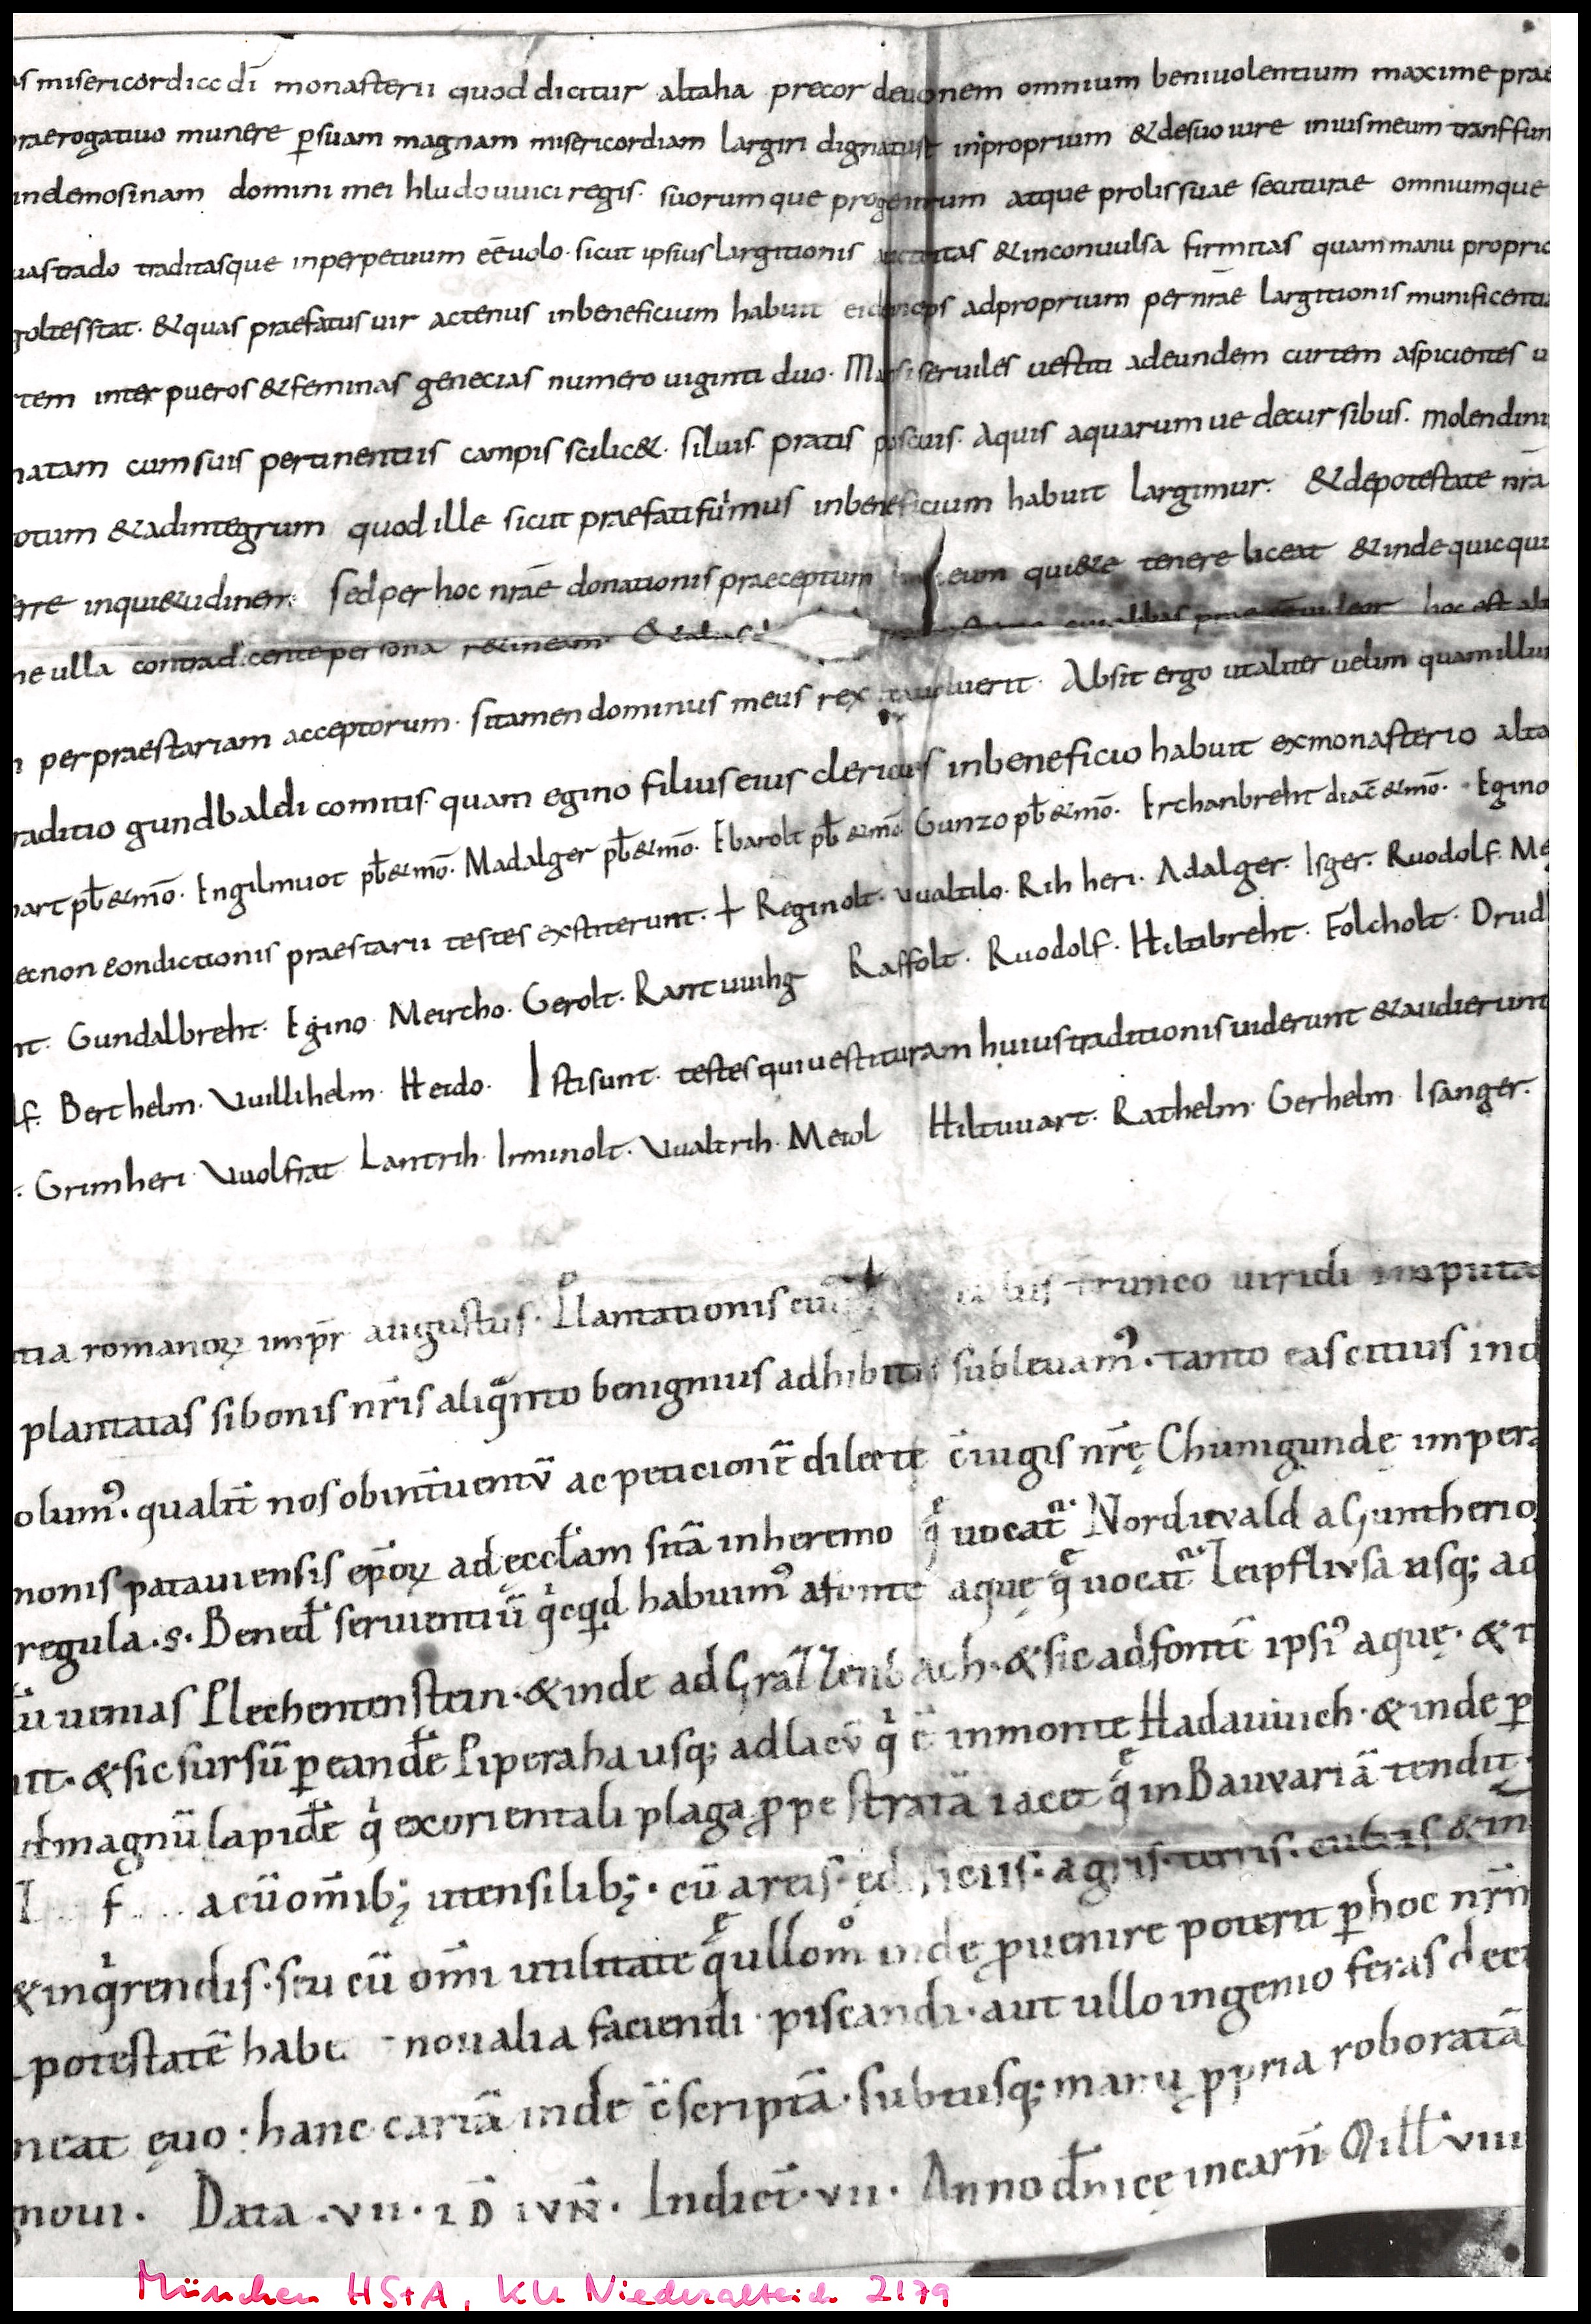 as misericordiae dī monasterii quod dicitur altaha precor deuonem omnium beniuolentium maxime prae
praerogatiuo munere ꝑ suam magnam misericordiam largiri dignatus÷ inproprium & desuo iure iniusmeum transfun
inelemosinam domini mei hludouuici regis· suorumque progenitorum atque prolis suae secuturae omniumque
uas trado traditasque inperpetuum eē uolo· sicut ipsius largitionis auctoritas & inconuulsa firmitas quam manu propria
goltesstat· & quas praefatus uir actenus inbeneficium habuit ei deinceps adproprium per nrāe largitionis munificentia
rtem inter pueros & feminas genecias numero uiginti duo· Mansi seruiles uestiti adeundem curtem aspicientes u
natam cum suis pertinentiis campis scilic&· siluis· pratis pascuis· Aquis aquarumue decursibus· molendini
otum & adintegrum quod ille sicut praefati sumus inbeneficium habuit largimur· & depotestate nrā
erre inqui&udinem· sed per hoc nrāe donationis praeceptum eum qui&e tenere liceat & inde quicqui
ne ulla contradicente persona r&ineam hoc est
per praestariam acceptorum· si tamen dominus meus rex uoluerit· Absit ergo ut aliter uelim quam illius
raditio gundbaldi comitis· quam egino filius eius clericus inbeneficio habuit exmonasterio alta
hart pƀ & mō· Engilmuot pƀ & mō· Madalger pƀ & mō· Ebarolt pƀ & mō· Gunzo pƀ & mō· Erchanbreht diac̄ & mō· Egino
ecnon condictionis praestarii testes exstiterunt· + Reginolt· Uualtilo· Rihheri· Adalger· Isger· Ruodolf· Me
nt· Gundalbreht· Egino· Meircho· Gerolt· Rantuuihg Raffolt· Ruodolf· Hiltibreht· Folcholt· Drud
lf· Berthelm· Uuillihelm· Heido· Isti sunt· testes qui uestituram huius traditionis uiderunt & audierunt
· Grimheri· Uuolfrat Lantrih· Irminolt· Uualtrih· Meiol Hiltuuart· Rathelm· Gerhelm· Isanger·
tia romanoꝝ imp̄r augustus· Plantationis trunco uiridi imputa
plantatas si bonis nr̄is aliqᵃnto benignius adhibitis subleuam᾽· tanto eas citius ind
olum᾽· qualit̄ nos ob int̄uentū ac peticionē dilecte c̄iugis nr̄ę Chunigundę impera
nonis patauiensis ep̄oꝝ ad ęccl̄am sitā inheremo q̨ uocat̄ Norduuald a Guntherio
regula· s· Bened̄ seruientiū qⁱcqd habuim᾽ a fonte aquę q̨ uocat̄ Leipflusa usq; ad
ū uenias Plechentenstein· & inde ad Grazzenbach· & sic ad fontē ipsi᾽ aquę· & r
it· & sic sursū ꝑ eandē Piperaha usq; ad lacū qⁱ ē inmonte Hadauuich· & inde ꝑ
d magnū lapidē qⁱ ex orientali plaga ꝓpe stratā iacet q̨ in Bauuariā tendit·
a cū om̄ib; utensilib;· cū areis· ędificiis· agris· terris· cultis & in
& inqⁱrendis· seu cū om̄i utilitate q̨ ullom̊ inde ꝓuenire poterit ꝑ hoc nr̄m
potestatē habe noualia faciendi· piscandi· aut ullo ingenio feras deci
neat ęuo· hanc cartā inde c̄scriptā· subtusq; manu ꝓpria roboratā
gnoui· Data· VII· ID IVN̄· Indict̄· VII· Anno dn̄icę incarn̄ Mill̄ VIII
München HStA, KU Niederalteich 2179